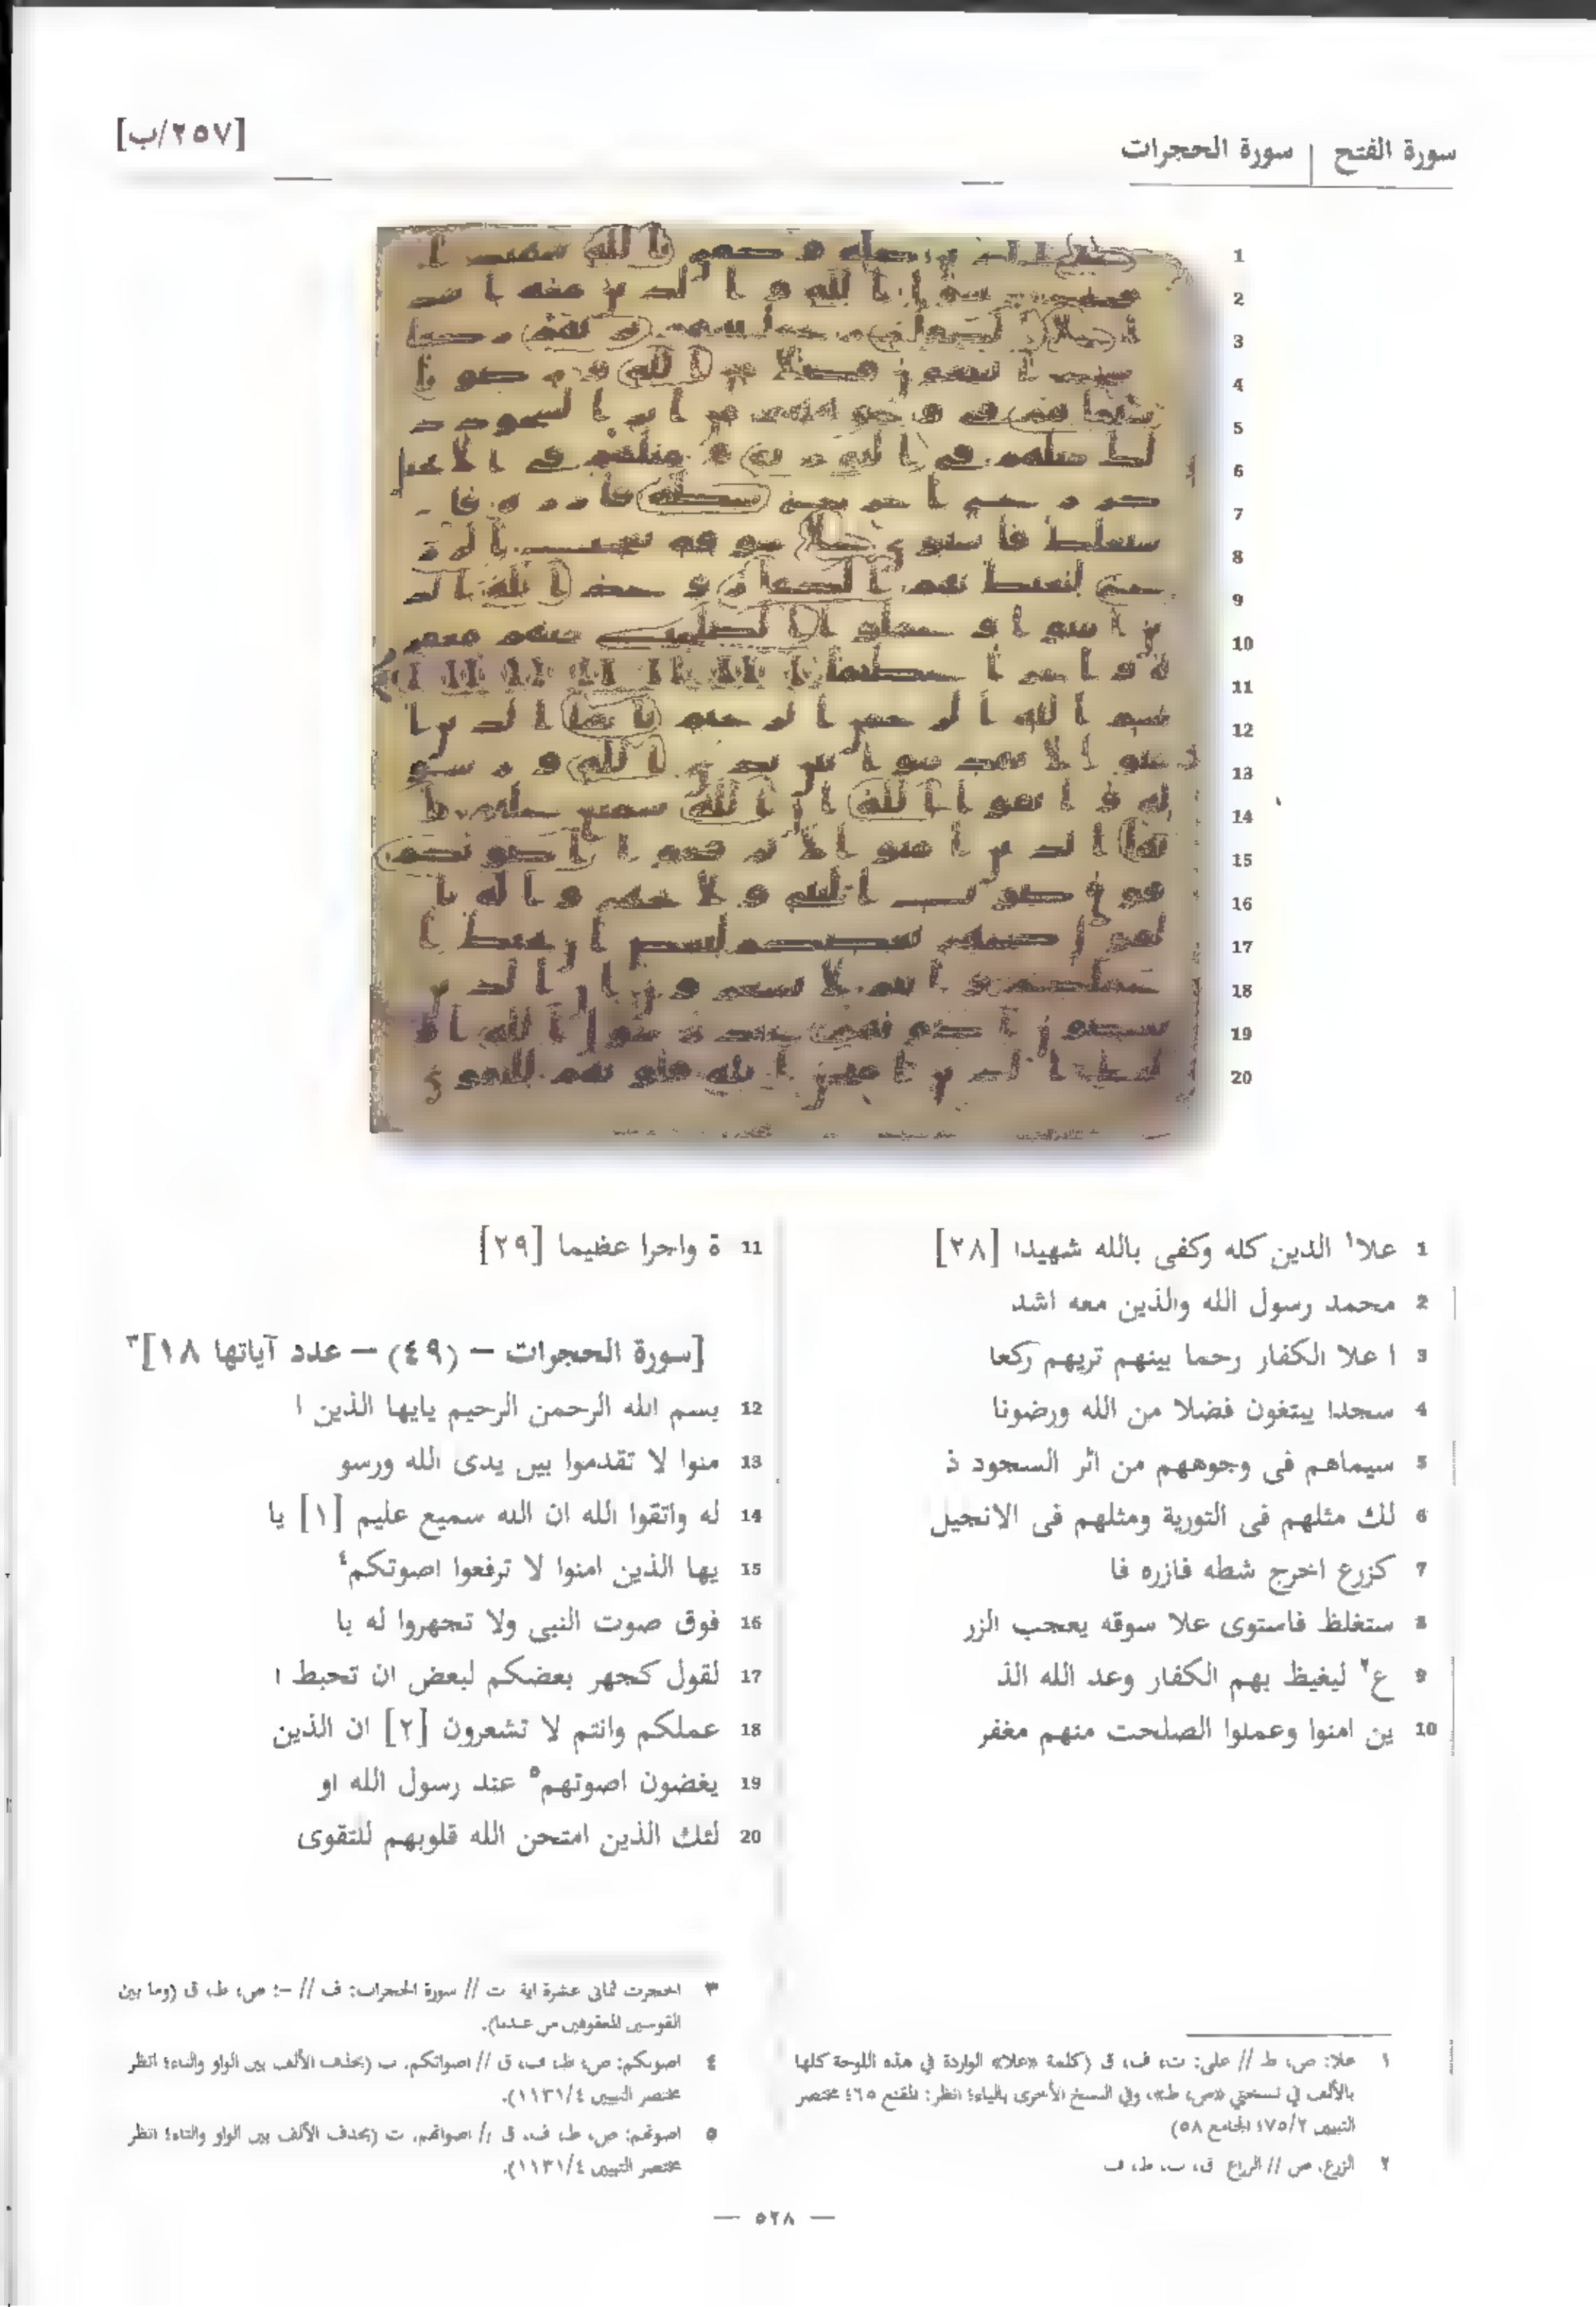 سورة الفتح | سورة الحجرات
[٢٥٧/ب]
1
2
3
4
5
6
7
8
9
10
11
12
13
14
15
16
17
18
19
20
1 علا١ الدين كله وكفى بالله شهيدا [٢٨]
2 محمد رسول الله والذين معه اشد
3 ا علا الكفار رحما بينهم تريهم ركعا
4 سجدا يبتغون فضلا من الله ورضونا
5 سيماهم فى وجوههم من اثر السجود ذ
6 لك مثلهم فى التورية ومثلهم فى الانجيل
7 كزرع اخرج شطه فازره فا
8 ستغلظ فاستوى علا سوقه يعجب الزر
9 ع٢ ليغيظ بهم الكفار وعد الله الذ
10 ين امنوا وعملوا الصلحت منهم مغفر
11 ة واجرا عظيما [٢٩]
[سورة الحجرات – (٤٩) – عدد آياتها ١٨]٣
12 بسم الله الرحمن الرحيم يايها الذين ا
13 منوا لا تقدموا بين يدى الله ورسو
14 له واتقوا الله ان الله سميع عليم [١] يا
15 يها الذين امنوا لا ترفعوا اصوتكم٤
16 فوق صوت النبى ولا تجهروا له با
17 لقول كجهر بعضكم لبعض ان تحبط ا
18 عملكم وانتم لا تشعرون [٢] ان الذين
19 يغضون اصوتهم٥ عند رسول الله او
20 لئك الذين امتحن الله قلوبهم للتقوى
١ علا: ص، ط // على: ت، ف، ق (كلمة «علا» الواردة في هذه اللوحة كلها
بالألف في نسختي «ص، ط»، وفي النسخ الأخرى بالياء؛ انظر: المقنع ٦٥؛ مختصر
التبيين ٧٥/٢؛ الجامع ٥٨)
٢ الزرع: ص // الزراع: ق، ت، ط، ف
٣ الحجرت ثمانى عشرة اية: ت // سورة الحجرات: ف // –: ص، ط، ق (وما بين
القوسين المعقوفين من عندنا).
٤ اصوتكم: ص، ط، ف، ق // اصواتكم: ت (بحذف الألف بين الواو والتاء؛ انظر
مختصر التبيين ١١٣١/٤).
٥ اصوتهم: ص، ط، ف، ق // اصواتهم: ت (بحذف الألف بين الواو والتاء؛ انظر
مختصر التبيين ١١٣١/٤).
— ٥٢٨ —